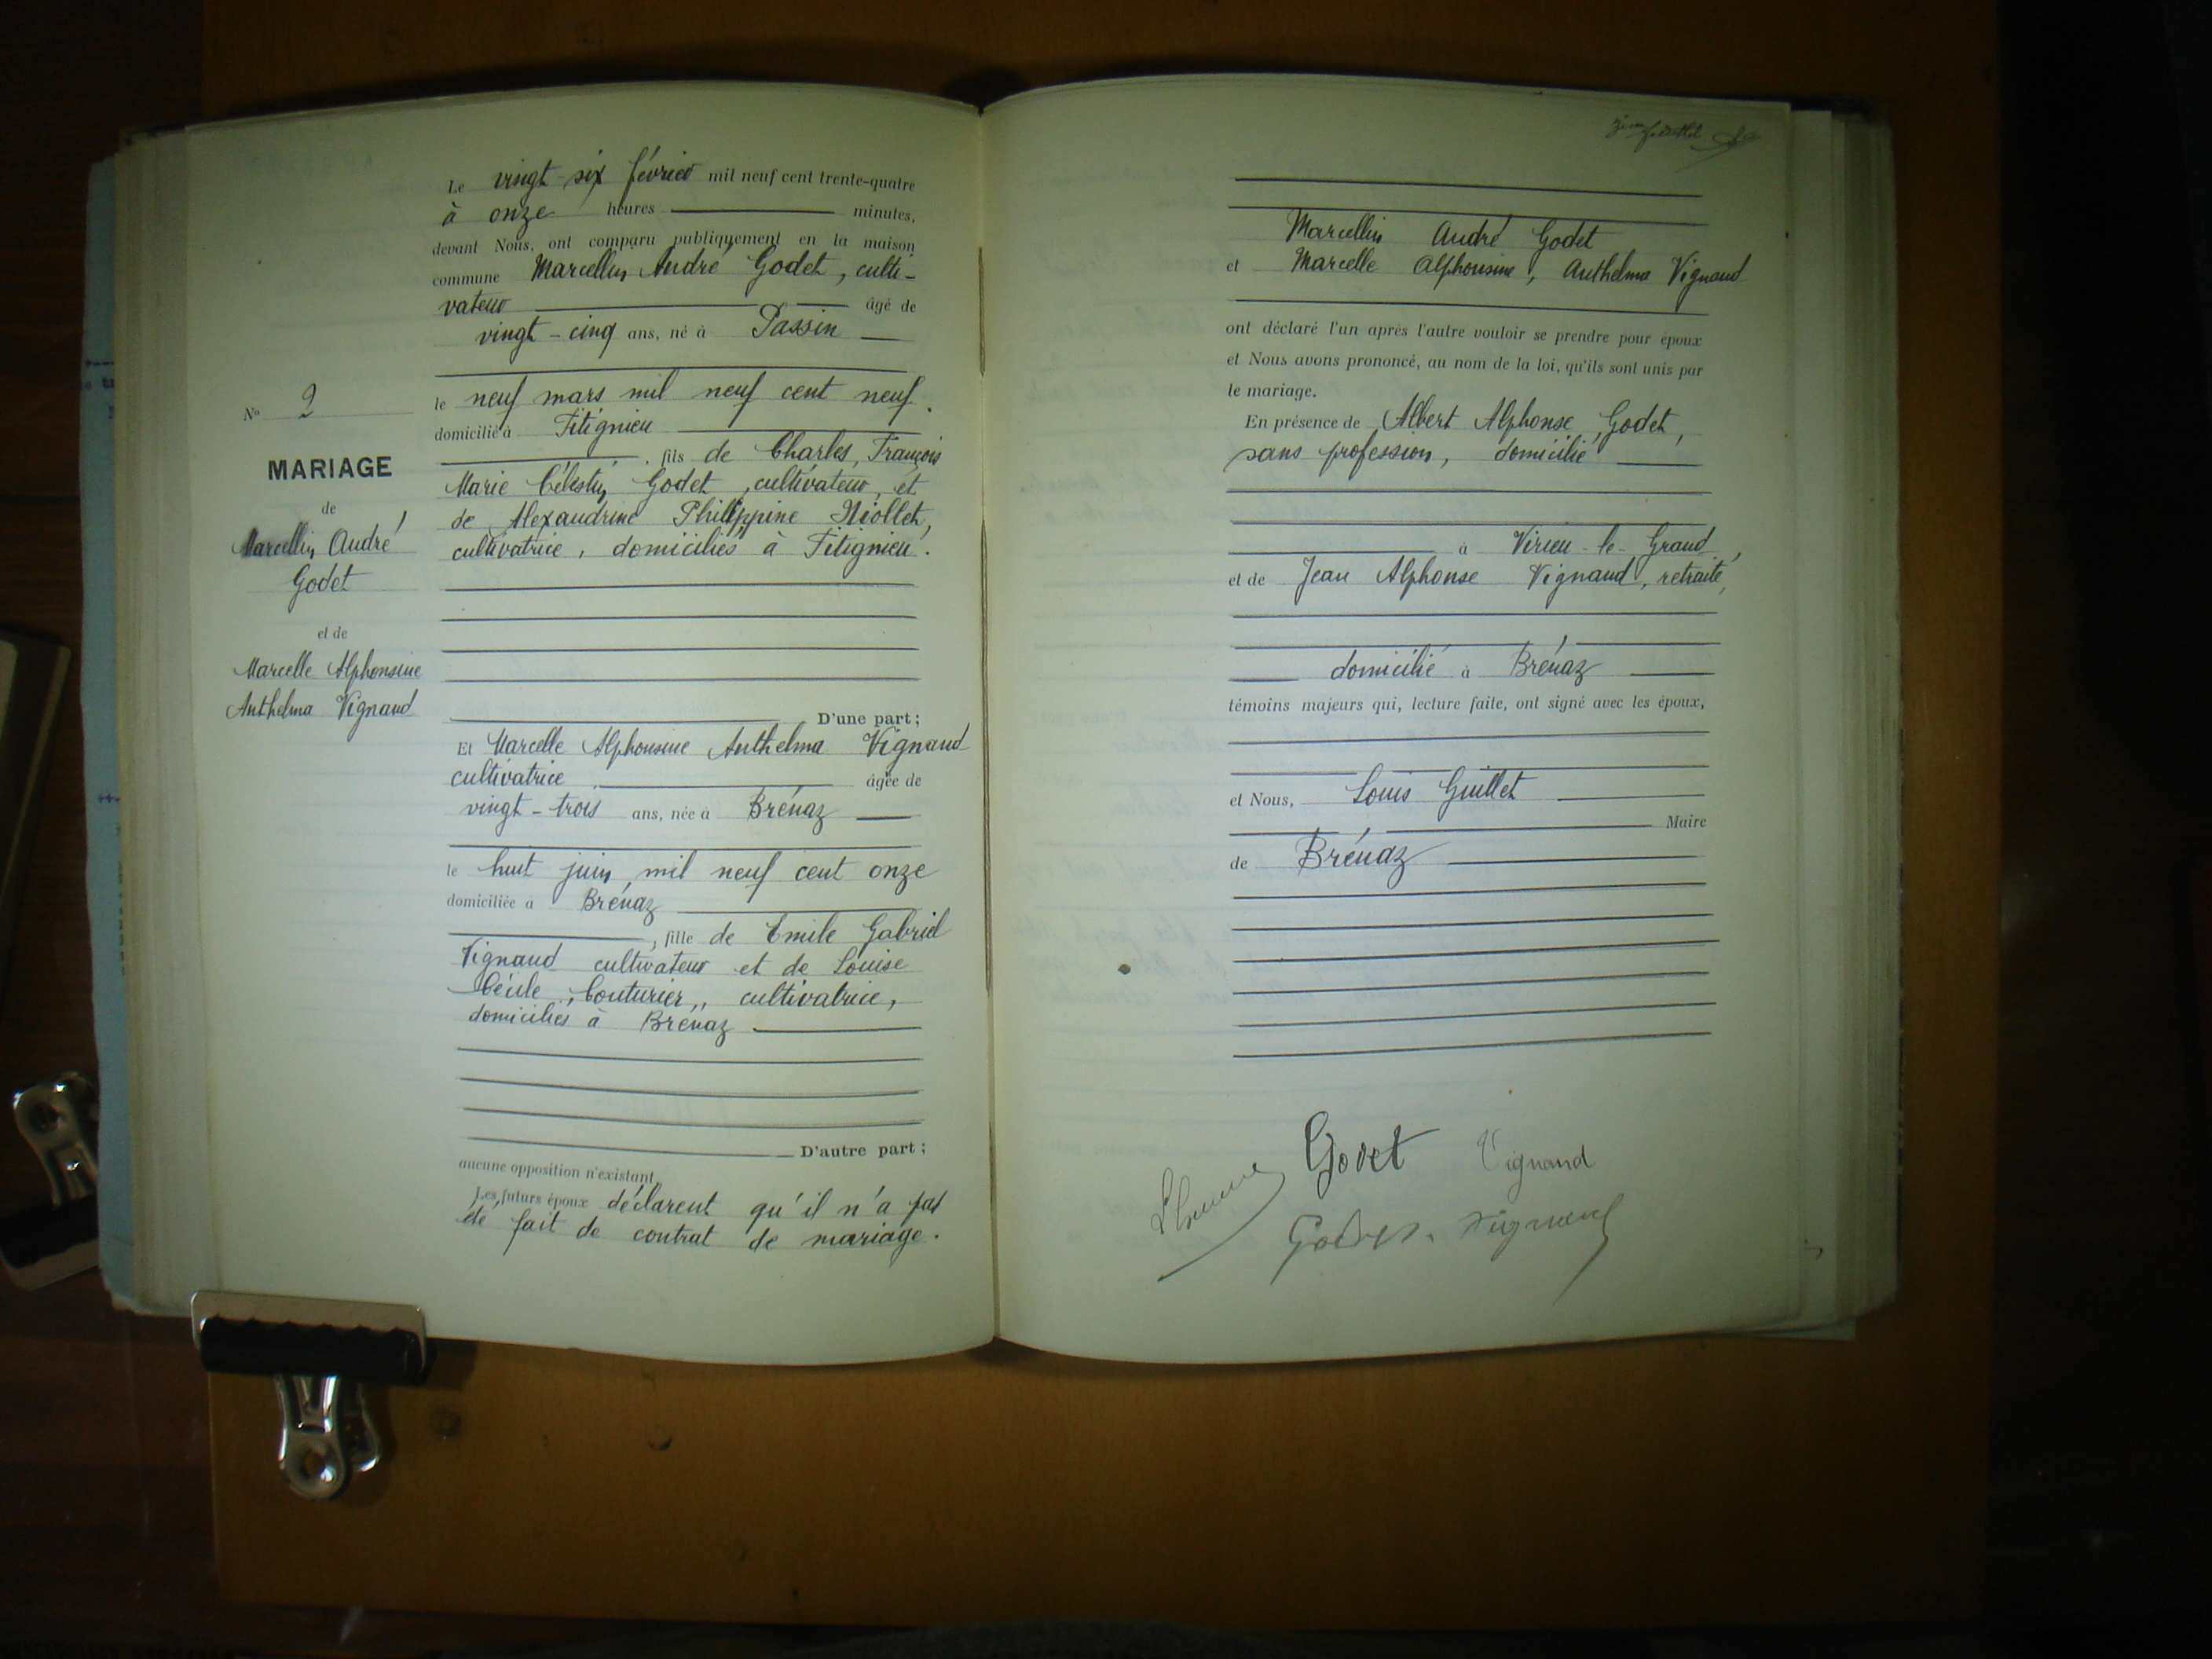 Le vingt-six février mil neuf cent trente-quatre
à onze heures minutes,
devant Nous, ont comparu publiquement en la maison
commune Marcellin André Godet, culti-
vateur âgé de
vingt-cinq ans, né à Passin
le neuf mars mil neuf cent neuf.
domicilié à Fitignieu
, fils de Charles, François
Marie Célestin Godet, cultivateur, et
de Alexandrine Philippine Niollet,
cultivatrice, domiciliés à Fitignieu.
D'une part;
Et Marcelle Alphonsine Anthelma Vignand
cultivatrice âgée de
vingt-trois ans, née à Brénaz
le huit juin mil neuf cent onze
domiciliée à Brénaz
, fille de Emile Gabriel
Vignand cultivateur et de Louise
Cécile, Couturier, cultivatrice,
domiciliés à Brénaz
D'autre part;
aucune opposition n'existant
Les futurs époux déclarent qu'il n'a pas
été fait de contrat de mariage.
No 2
MARIAGE
de
Marcellin André
Godet
et de
Marcelle Alphonsine
Anthelma Vignand
Marcellin André Godet
et Marcelle Alphonsine, Anthelma Vignand
ont déclaré l'un après l'autre vouloir se prendre pour époux
et Nous avons prononcé, au nom de la loi, qu'ils sont unis par
le mariage.
En présence de Albert Alphonse Godet,
sans profession, domicilié
à Virieu-le-Grand,
et de Jean Alphonse Vignand, retraité,
domicilié à Brénaz
témoins majeurs qui, lecture faite, ont signé avec les époux,
et Nous, Louis Guillet
Maire
de Brénaz
Godet Vignand
Godet. Vignand